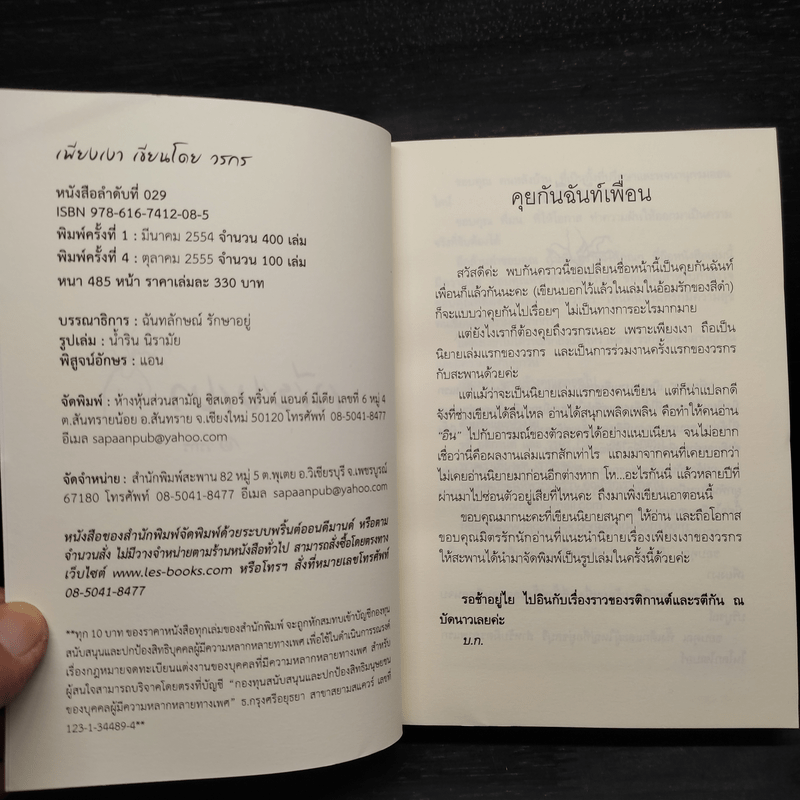 เพียงเงา เขียนโดย วรกร
หนังสือลำดับที่ 029
ISBN 978-616-7412-08-5
พิมพ์ครั้งที่ 1 : มีนาคม 2554 จำนวน 400 เล่ม
พิมพ์ครั้งที่ 4 : ตุลาคม 2555 จำนวน 100 เล่ม
หนา 485 หน้า ราคาเล่มละ 330 บาท
บรรณาธิการ : ฉันทลักษณ์ รักษาอยู่
รูปเล่ม : น้ำริน นิรามัย
พิสูจน์อักษร : แอน
จัดพิมพ์ : ห้างหุ้นส่วนสามัญ ซิสเตอร์ พริ้นต์ แอนด์ มีเดีย เลขที่ 6 หมู่ 4
ต.สันทรายน้อย อ.สันทราย จ.เชียงใหม่ 50120 โทรศัพท์ 08-5041-8477
อีเมล sapaanpub@yahoo.com
จัดจำหน่าย : สำนักพิมพ์สะพาน 82 หมู่ 5 ต.พุเตย อ.วิเชียรบุรี จ.เพชรบูรณ์
67180 โทรศัพท์ 08-5041-8477 อีเมล sapaanpub@yahoo.com
หนังสือของสำนักพิมพ์จัดพิมพ์ด้วยระบบพริ้นต์ออนดีมานด์ หรือตาม
จำนวนสั่ง ไม่มีวางจำหน่ายตามร้านหนังสือทั่วไป สามารถสั่งซื้อโดยตรงทาง
เว็บไซต์ www.les-books.com หรือโทรฯ สั่งที่หมายเลขโทรศัพท์
08-5041-8477
**ทุก 10 บาท ของราคาหนังสือทุกเล่มของสำนักพิมพ์ จะถูกหักสมทบเข้าบัญชีกองทุน
สนับสนุนและปกป้องสิทธิบุคคลผู้มีความหลากหลายทางเพศ เพื่อใช้ในดำเนินการรณรงค์
เรื่องกฎหมายจดทะเบียนแต่งงานของบุคคลที่มีความหลากหลายทางเพศ สำหรับ
ผู้สนใจสามารถบริจาคโดยตรงที่บัญชี "กองทุนสนับสนุนและปกป้องสิทธิมนุษยชน
ของบุคคลผู้มีความหลากหลายทางเพศ" ธ.กรุงศรีอยุธยา สาขาสยามสแควร์ เลขที่
123-1-34489-4**
คุยกันฉันท์เพื่อน
สวัสดีค่ะ พบกันคราวนี้ขอเปลี่ยนชื่อหน้านี้เป็นคุยกันฉันท์
เพื่อนก็แล้วกันนะคะ (เขียนบอกไว้แล้วในเล่มในอ้อมรักของสีดำ)
ก็จะแบบว่าคุยกันไปเรื่อยๆ ไม่เป็นทางการอะไรมากมาย
แต่ยังไงเราก็ต้องคุยถึงวรกรเนอะ เพราะเพียงเงา ถือเป็น
นิยายเล่มแรกของวรกร และเป็นการร่วมงานครั้งแรกของวรกร
กับสะพานด้วยค่ะ
แต่แม้ว่าจะเป็นนิยายเล่มแรกของคนเขียน แต่ก็น่าแปลกดี
จังที่ช่างเขียนได้ลื่นไหล อ่านได้สนุกเพลิดเพลิน คือทำให้คนอ่าน
"อิน" ไปกับอารมณ์ของตัวละครได้อย่างแนบเนียน จนไม่อยาก
เชื่อว่านี่คือผลงานเล่มแรกสักเท่าไร แถมมาจากคนที่เคยบอกว่า
ไม่เคยอ่านนิยายมาก่อนอีกต่างหาก โห...อะไรกันนี่ แล้วหลายปีที่
ผ่านมาไปซ่อนตัวอยู่เสียที่ไหนคะ ถึงมาเพิ่งเขียนเอาตอนนี้
ขอบคุณมากนะคะที่เขียนนิยายสนุกๆ ให้อ่าน และถือโอกาส
ขอบคุณมิตรรักนักอ่านที่แนะนำนิยายเรื่องเพียงเงาของวรกร
ให้สะพานได้นำมาจัดพิมพ์เป็นรูปเล่มในครั้งนี้ด้วยค่ะ
รอช้าอยู่ไย ไปอินกับเรื่องราวของรติกานต์และรตีกัน ณ
บัดนาวเลยค่ะ
บ.ก.